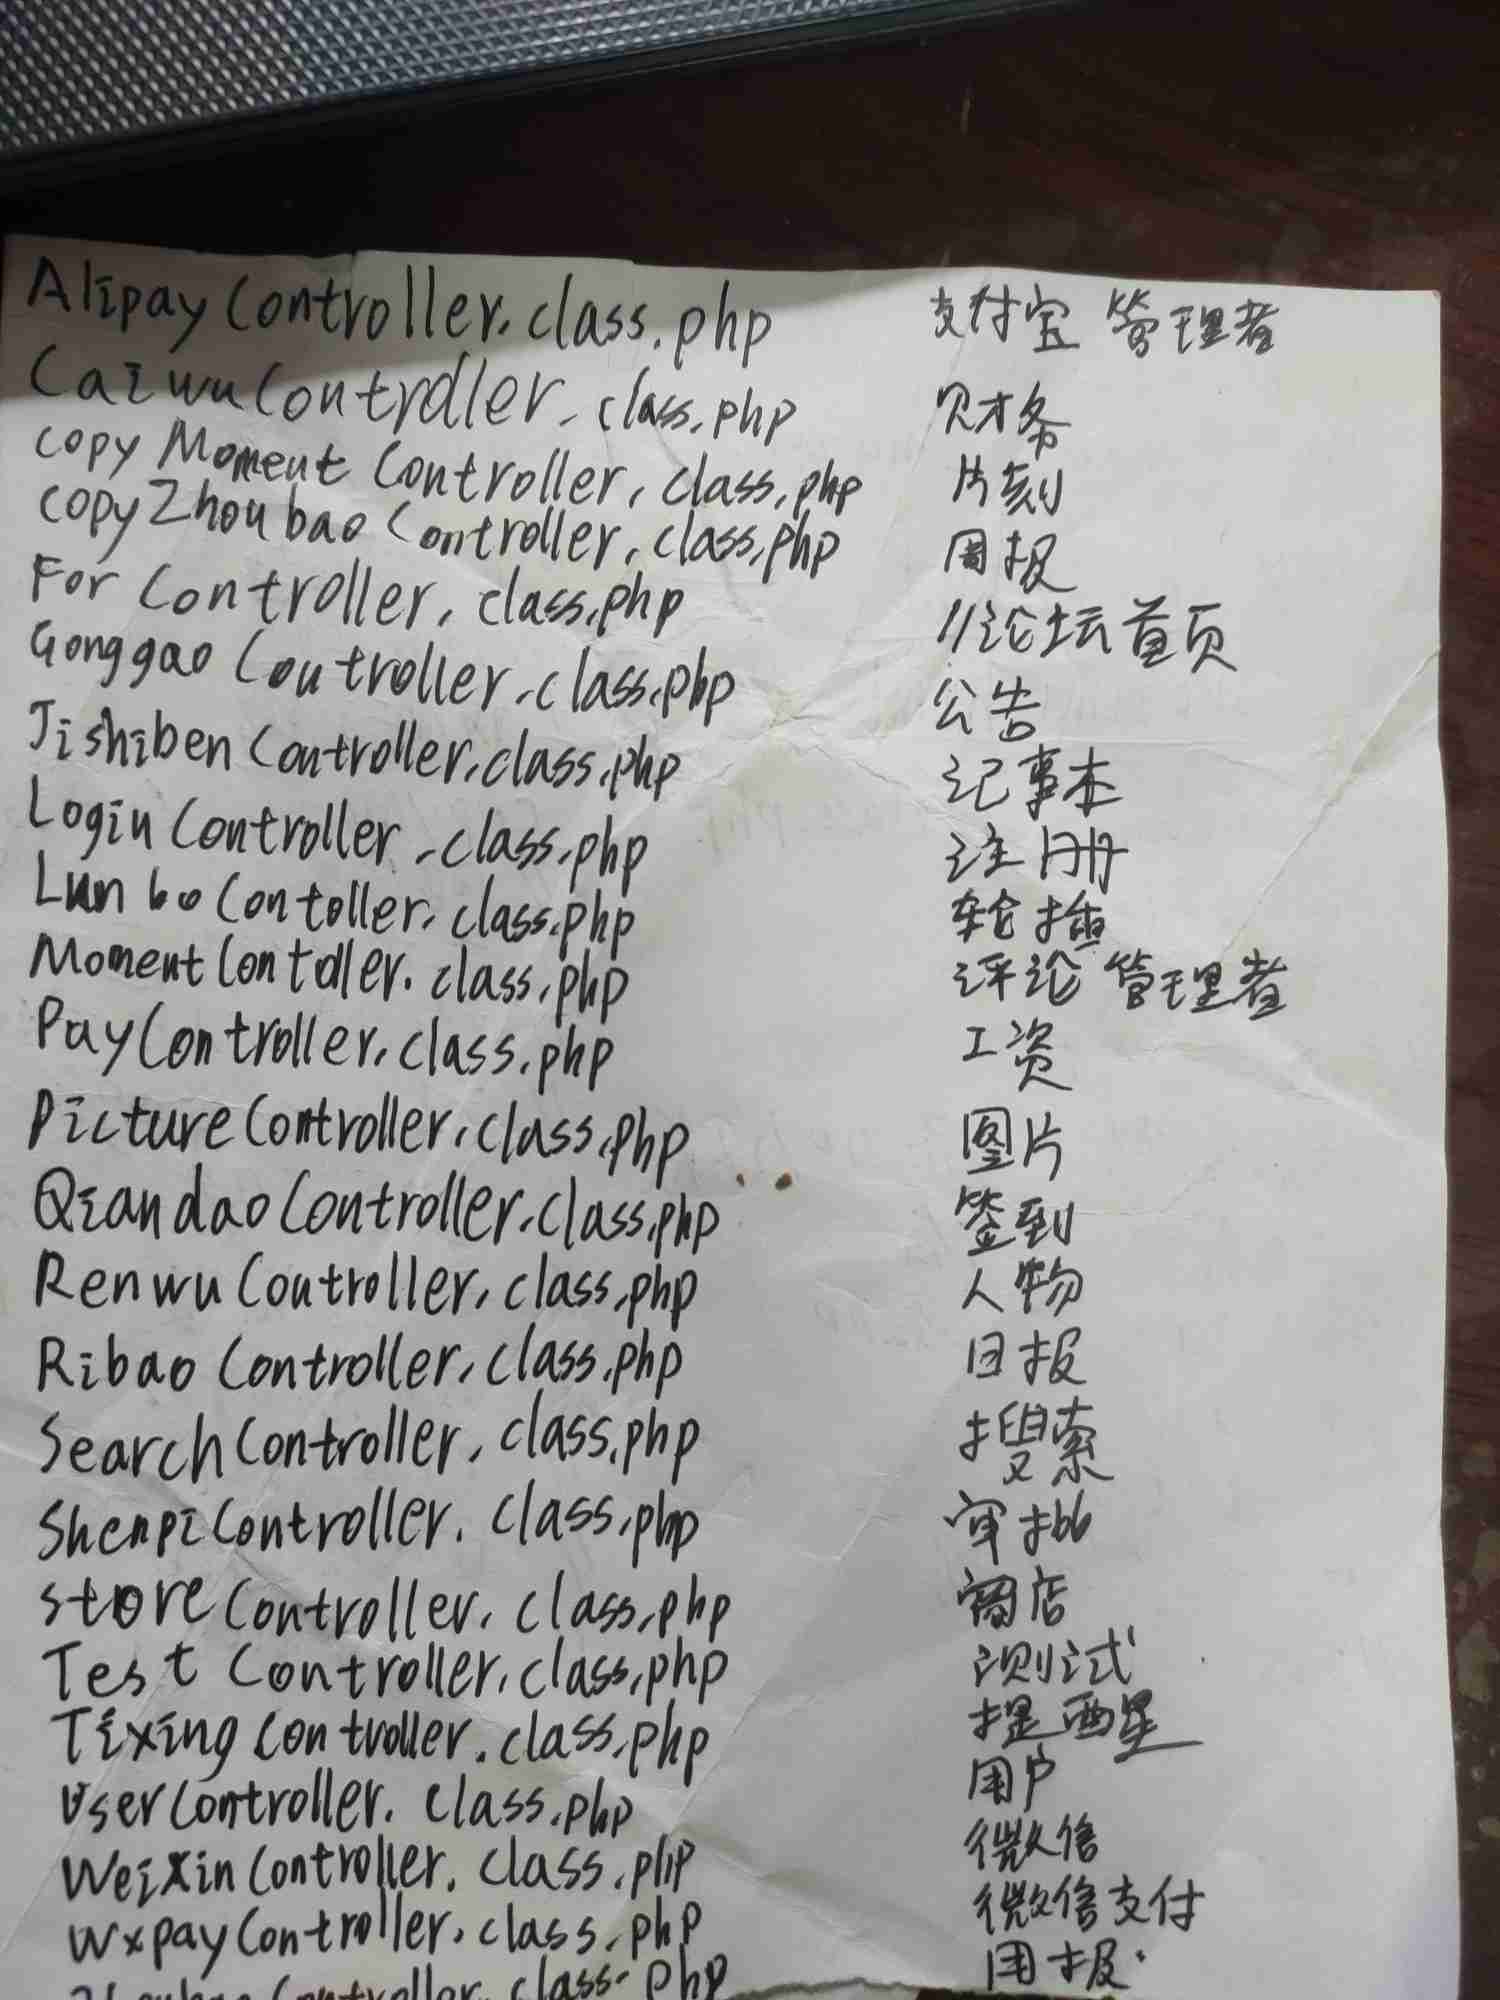 AlipayController.class.php 支付宝 管理者
CaiwuController.class.php 财务
copyMomentController.class.php 片刻
copyZhoubaoController.class.php 周报
ForController.class.php //论坛首页
GonggaoController.class.php 公告
JishibenController.class.php 记事本
LoginController.class.php 注册
LunboContoller.class.php 轮播
MomentContoller.class.php 评论 管理者
PayController.class.php 工资
PictureController.class.php 图片
QiandaoController.class.php 签到
RenwuController.class.php 人物
RibaoController.class.php 日报
SearchController.class.php 搜索
ShenpiController.class.php 审批
storeController.class.php 商店
TestController.class.php 测试
TixingController.class.php 提醒
UserController.class.php 用户
WeiXinController.class.php 微信
WxpayController.class.php 微信支付
ZhoubaoController.class.php 周报.